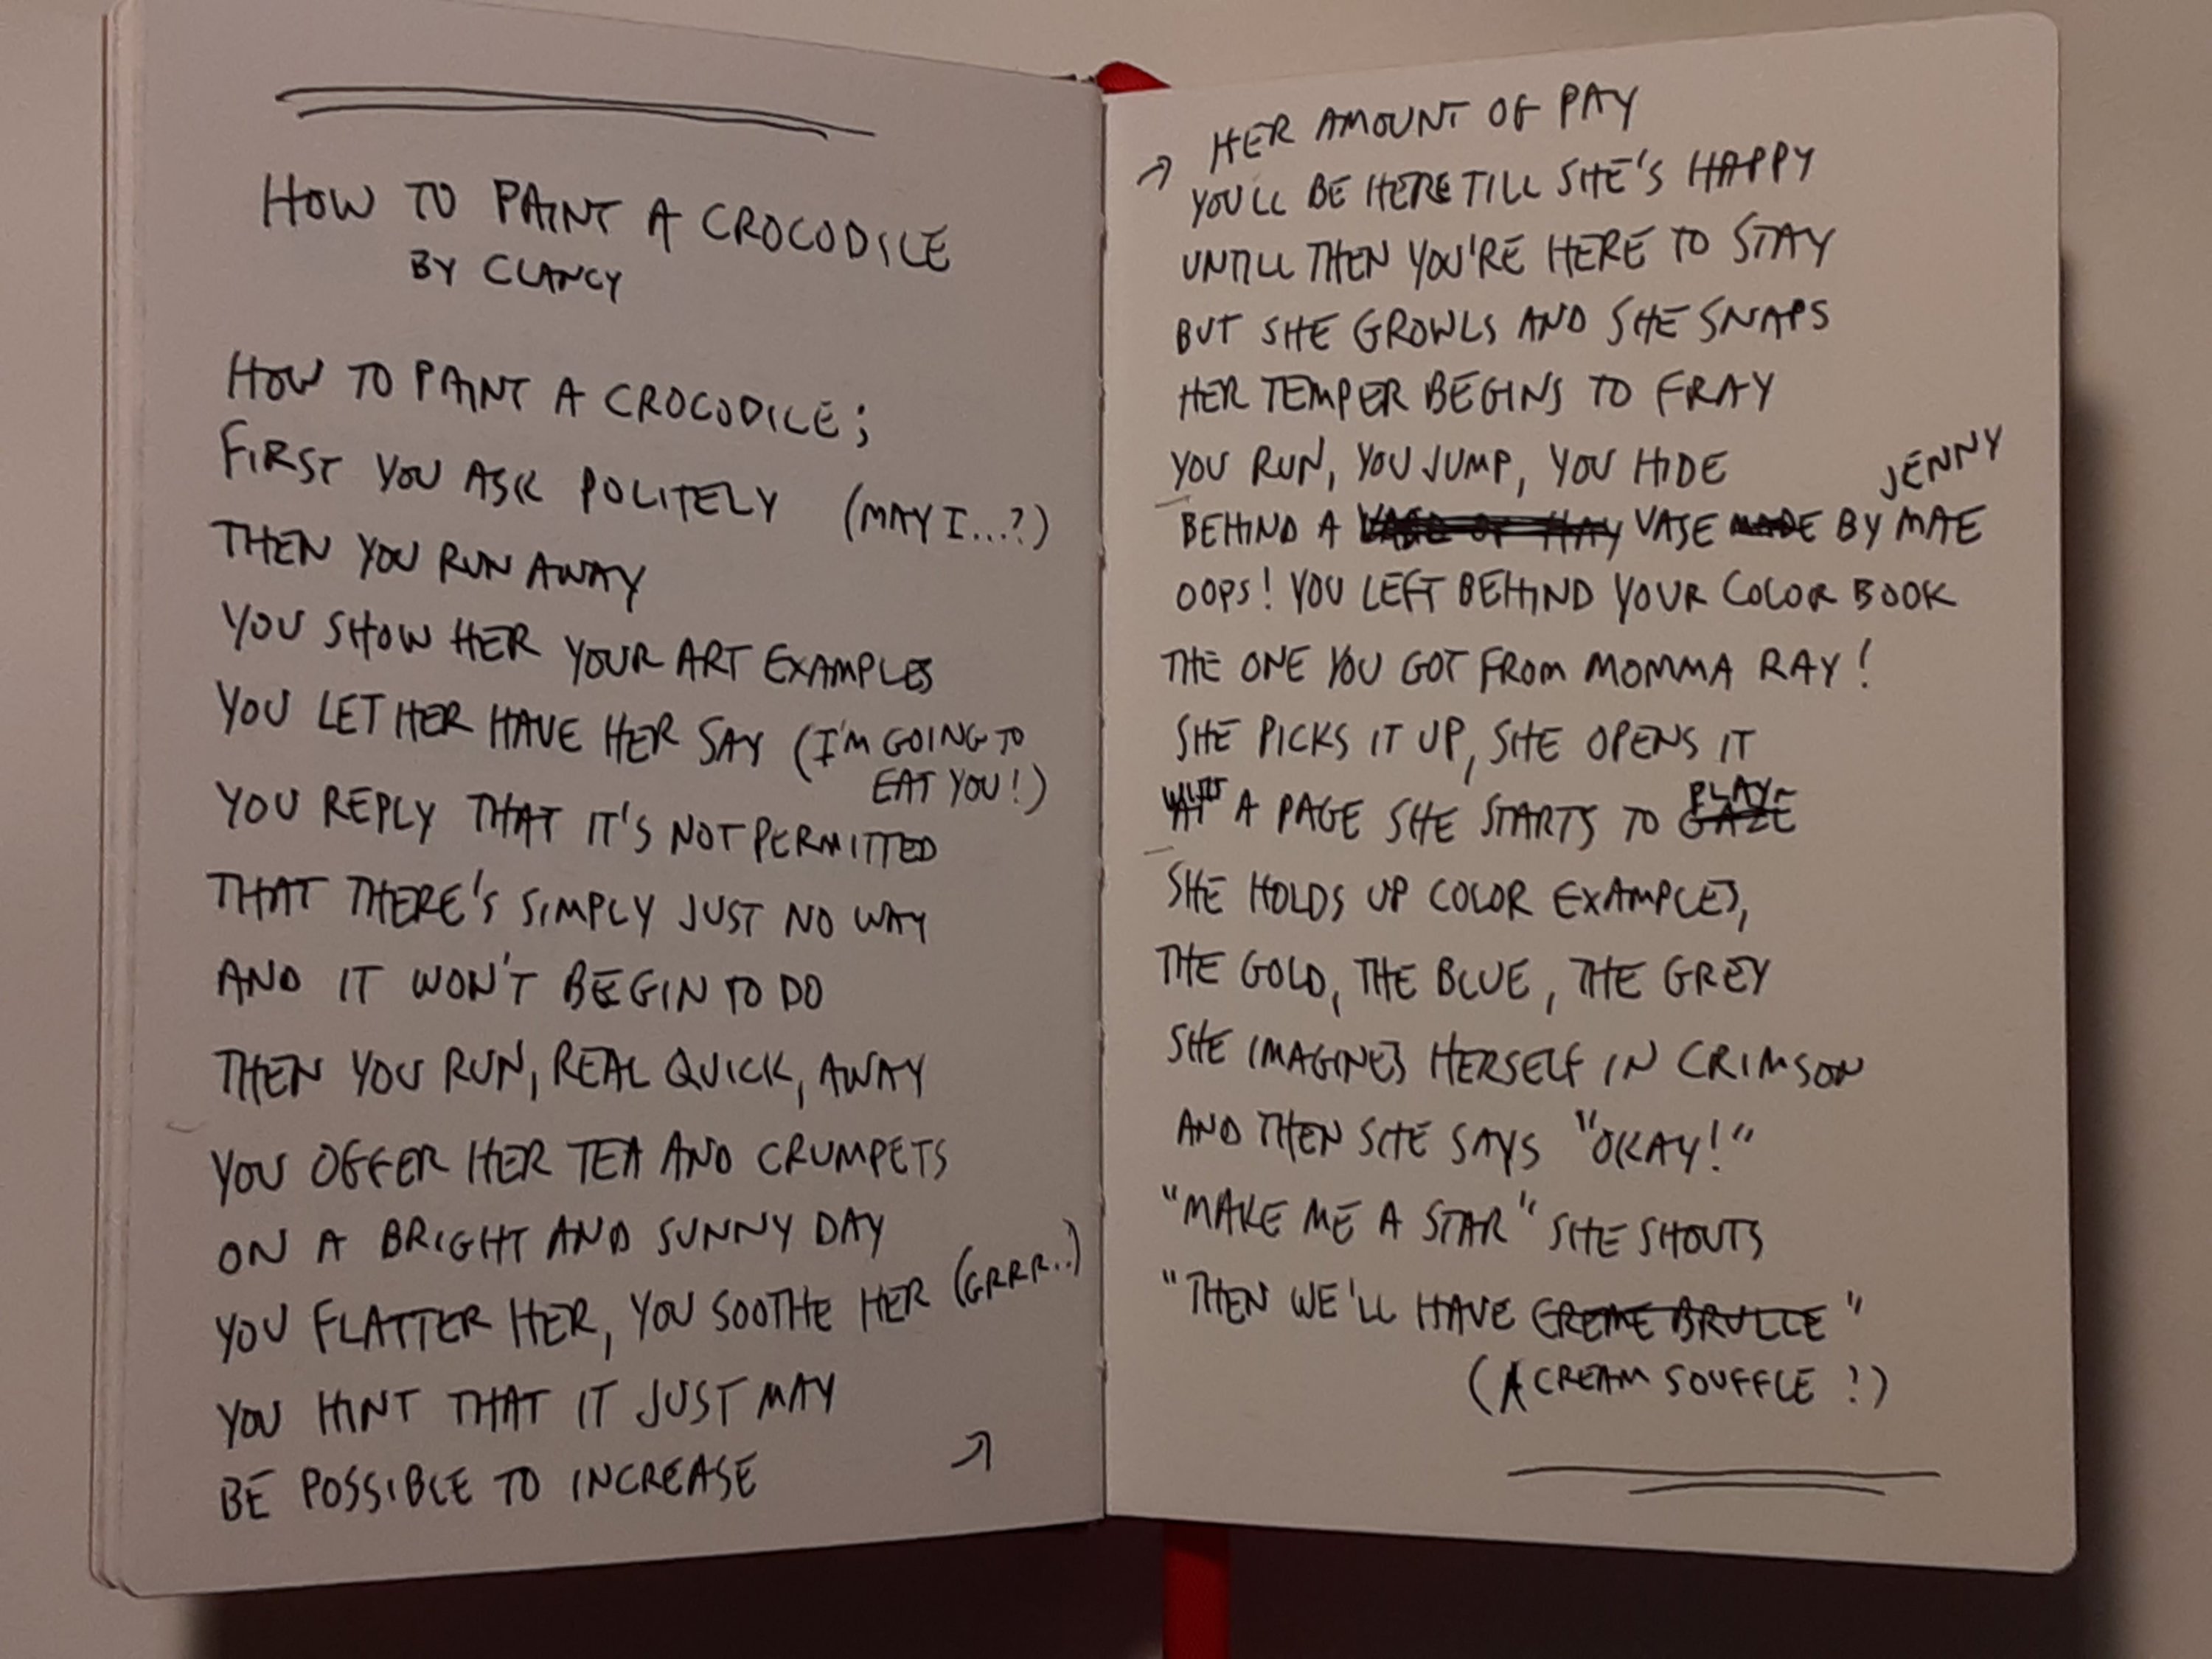 HOW TO PAINT A CROCODILE
BY CLANCY
HOW TO PAINT A CROCODILE;
FIRST YOU ASK POLITELY (MAY I...?)
THEN YOU RUN AWAY
YOU SHOW HER YOUR ART EXAMPLES
YOU LET HER HAVE HER SAY (I'M GOING TO
EAT YOU!)
YOU REPLY THAT IT'S NOT PERMITTED
THAT THERE'S SIMPLY JUST NO WAY
AND IT WON'T BEGIN TO DO
THEN YOU RUN, REAL QUICK, AWAY
YOU OFFER HER TEA AND CRUMPETS
ON A BRIGHT AND SUNNY DAY
YOU FLATTER HER, YOU SOOTHE HER (GRRR..)
YOU HINT THAT IT JUST MAY
BE POSSIBLE TO INCREASE
HER AMOUNT OF PAY
YOU'LL BE HERE TILL SHE'S HAPPY
UNTILL THEN YOU'RE HERE TO STAY
BUT SHE GROWLS AND SHE SNAPS
HER TEMPER BEGINS TO FRAY
YOU RUN, YOU JUMP, YOU HIDE
JENNY
BEHIND A VASE MADE BY MAE
OOPS! YOU LEFT BEHIND YOUR COLOR BOOK
THE ONE YOU GOT FROM MOMMA RAY!
SHE PICKS IT UP, SHE OPENS IT
PLAY
A PAGE SHE STARTS TO GAZE
SHE HOLDS UP COLOR EXAMPLES,
THE GOLD, THE BLUE, THE GREY
SHE IMAGINES HERSELF IN CRIMSON
AND THEN SHE SAYS "OKAY!"
"MAKE ME A STAR" SHE SHOUTS
"THEN WE'LL HAVE CREME BRULLE"
(A CREAM SOUFFLE!)